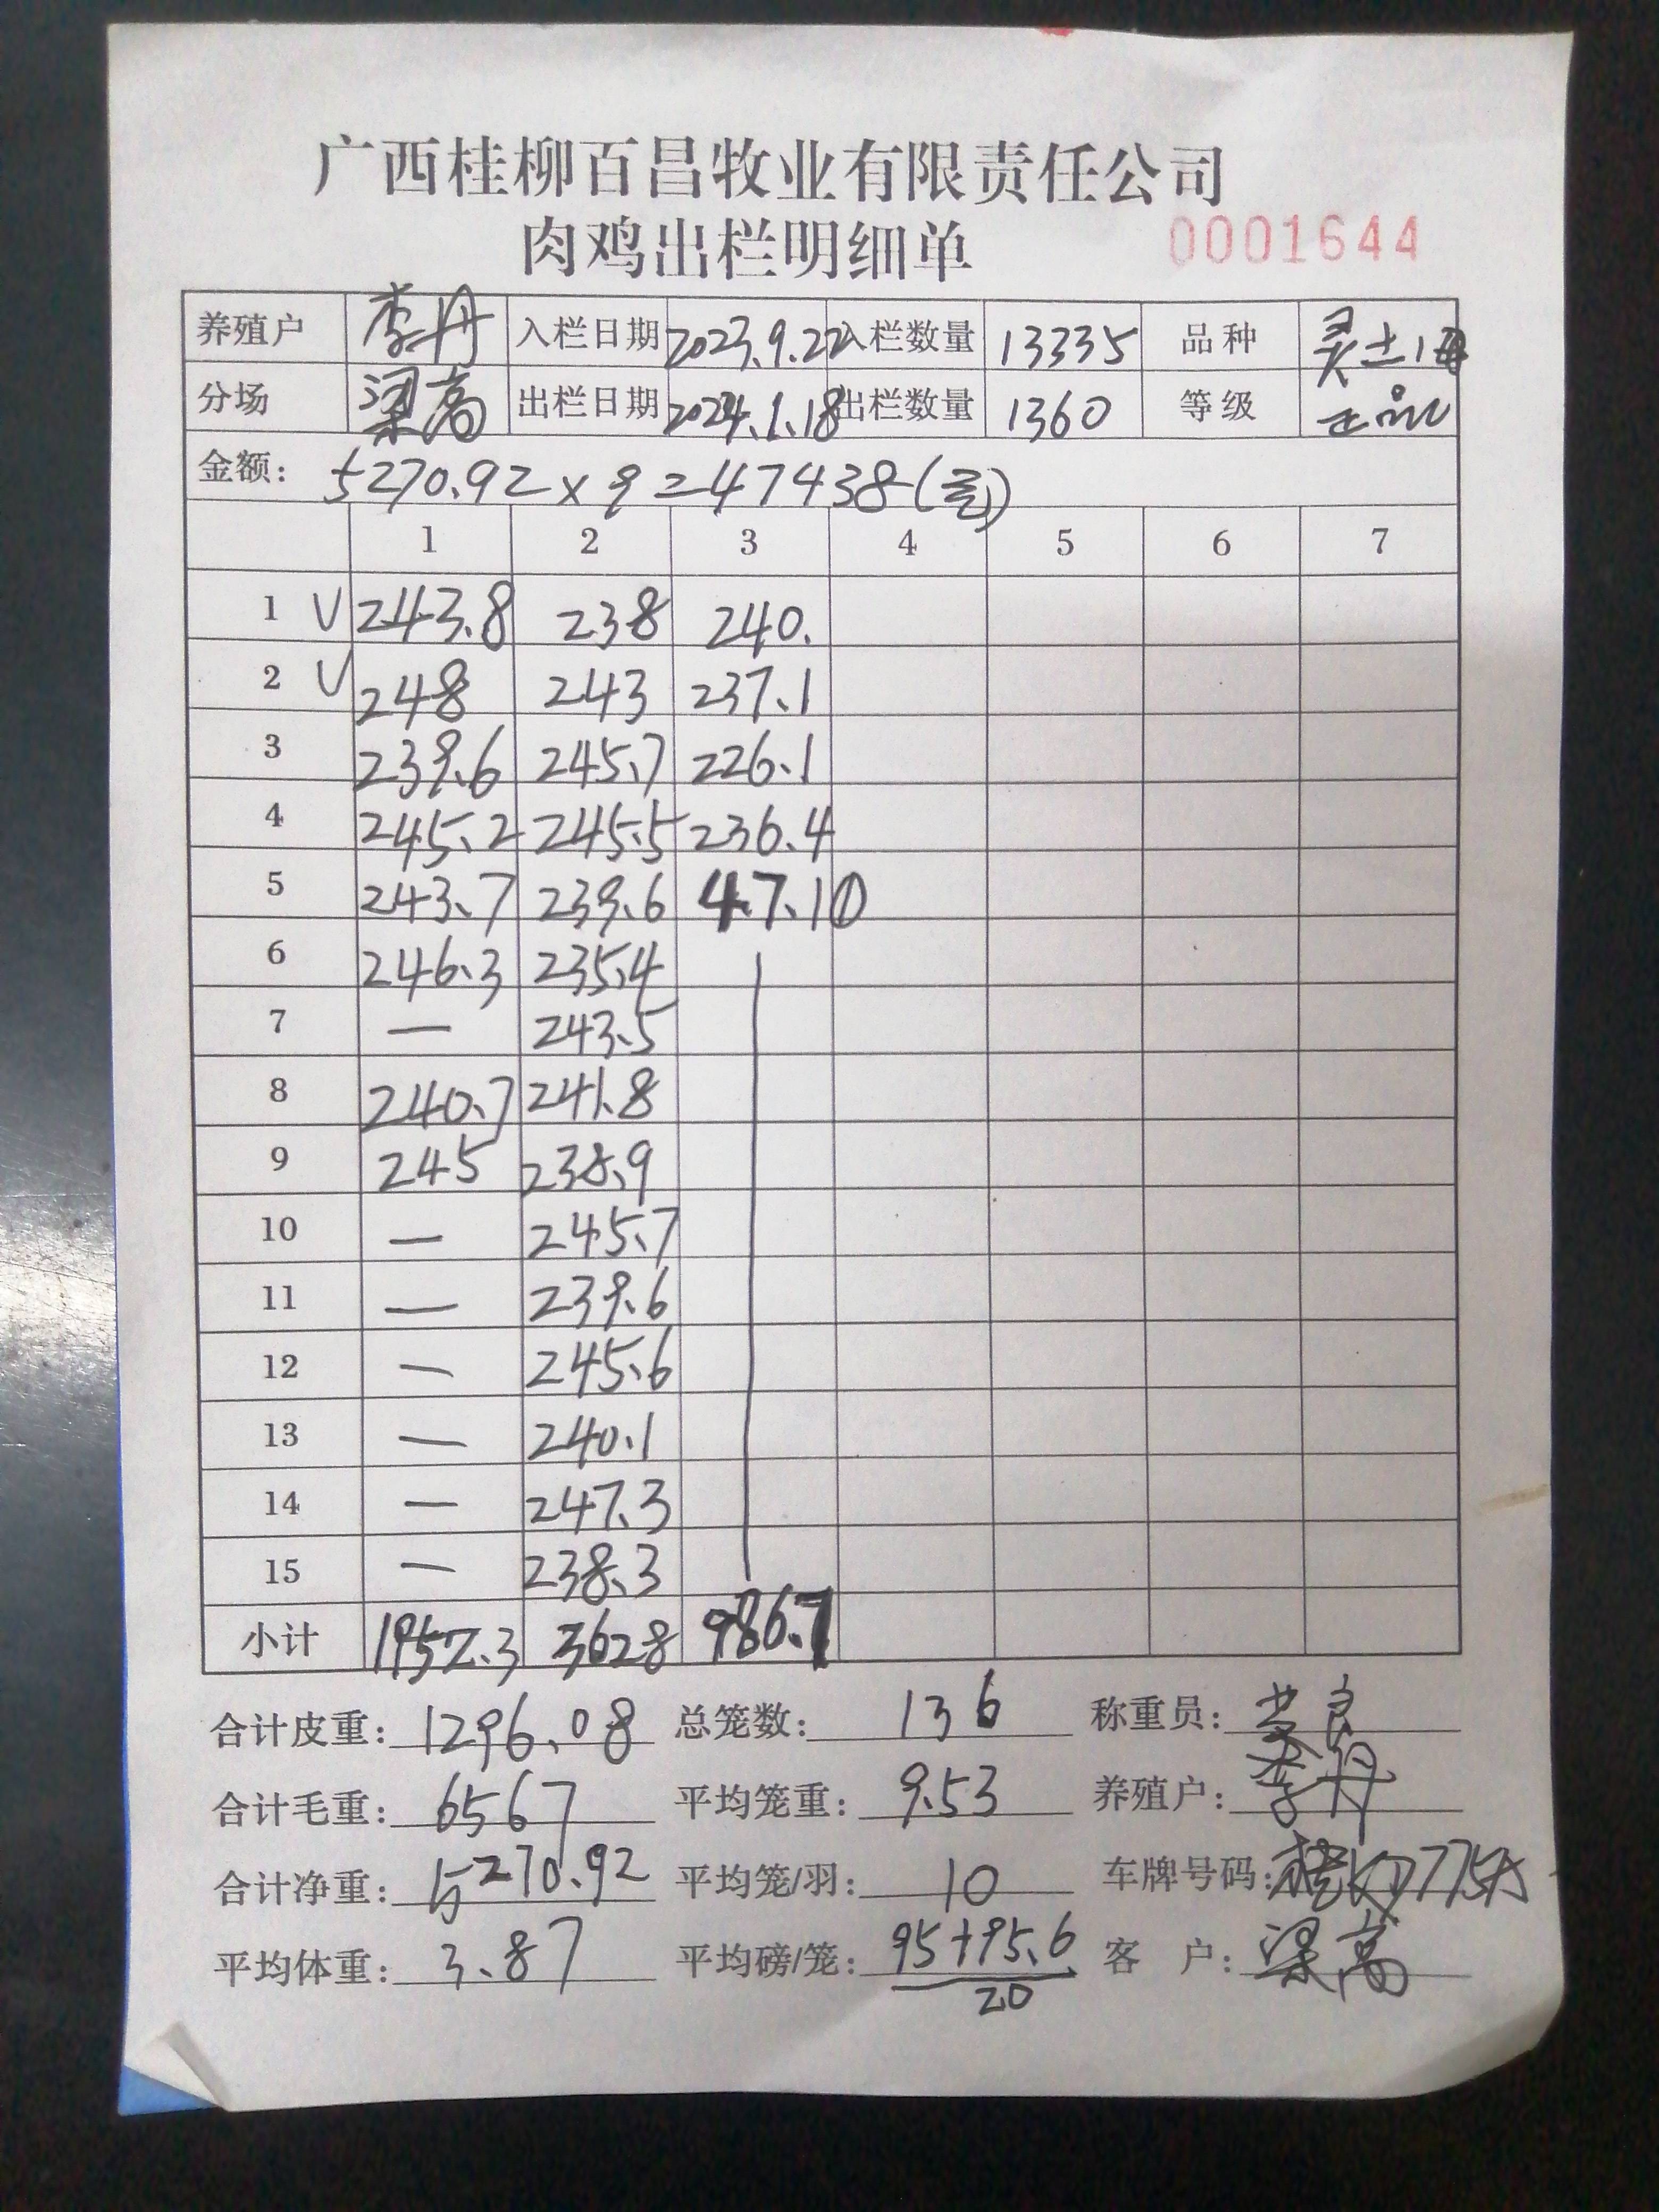 广西桂柳百昌牧业有限责任公司
肉鸡出栏明细单 0001644
养殖户 李丹 入栏日期 2023.9.22 入栏数量 13335 品种 灵土1母
分场 梁高 出栏日期 2024.1.18 出栏数量 1360 等级 正品
金额: 5270.92×9=47438(元)
1 2 3 4 5 6 7
1 V 243.8 238 240.
2 V 248 243 237.1
3 239.6 245.7 226.1
4 245.2 245.5 236.4
5 243.7 239.6 47.1①
6 246.3 235.4
7 — 243.5
8 240.7 241.8
9 245 238.9
10 — 245.7
11 — 239.6
12 — 245.6
13 — 240.1
14 — 247.3
15 — 238.3
小计 1952.3 3628 986.7
合计皮重: 1296.08 总笼数: 136 称重员:
合计毛重: 6567 平均笼重: 9.53 养殖户: 李丹
合计净重: 5270.92 平均笼/羽: 10 车牌号码:
平均体重: 3.87 平均磅/笼: 95+95.6 客 户: 梁高
20